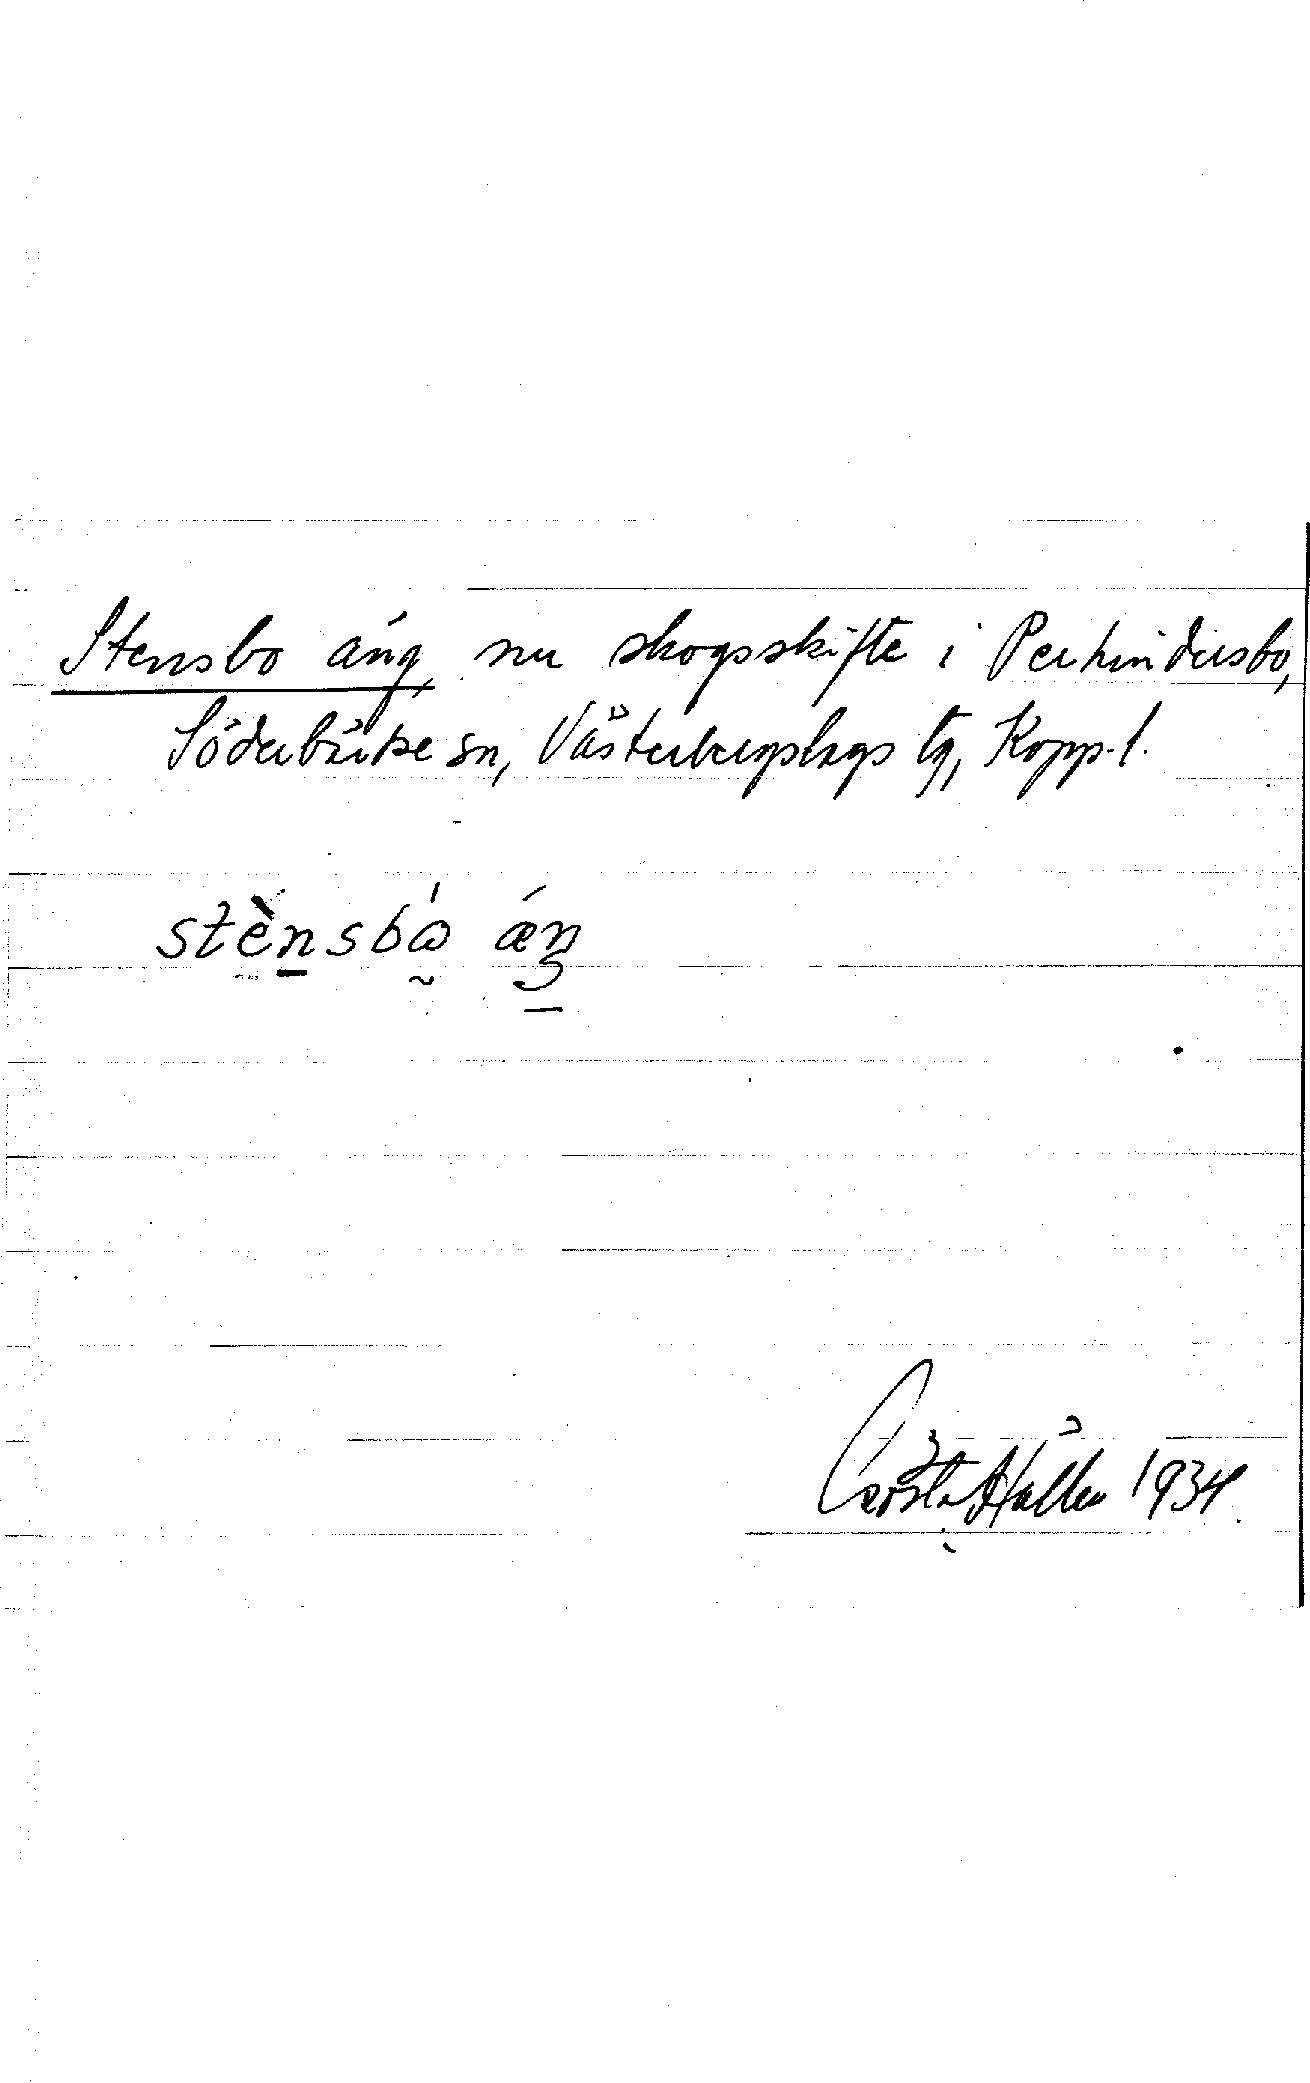 Stensbo äng, nu skogsskifte i Perhindersbo,
Söderbärke sn, Västerbergslags tg, Kopp. l.
stènsbώ ǽŋ
Gösta Hallen 1934.